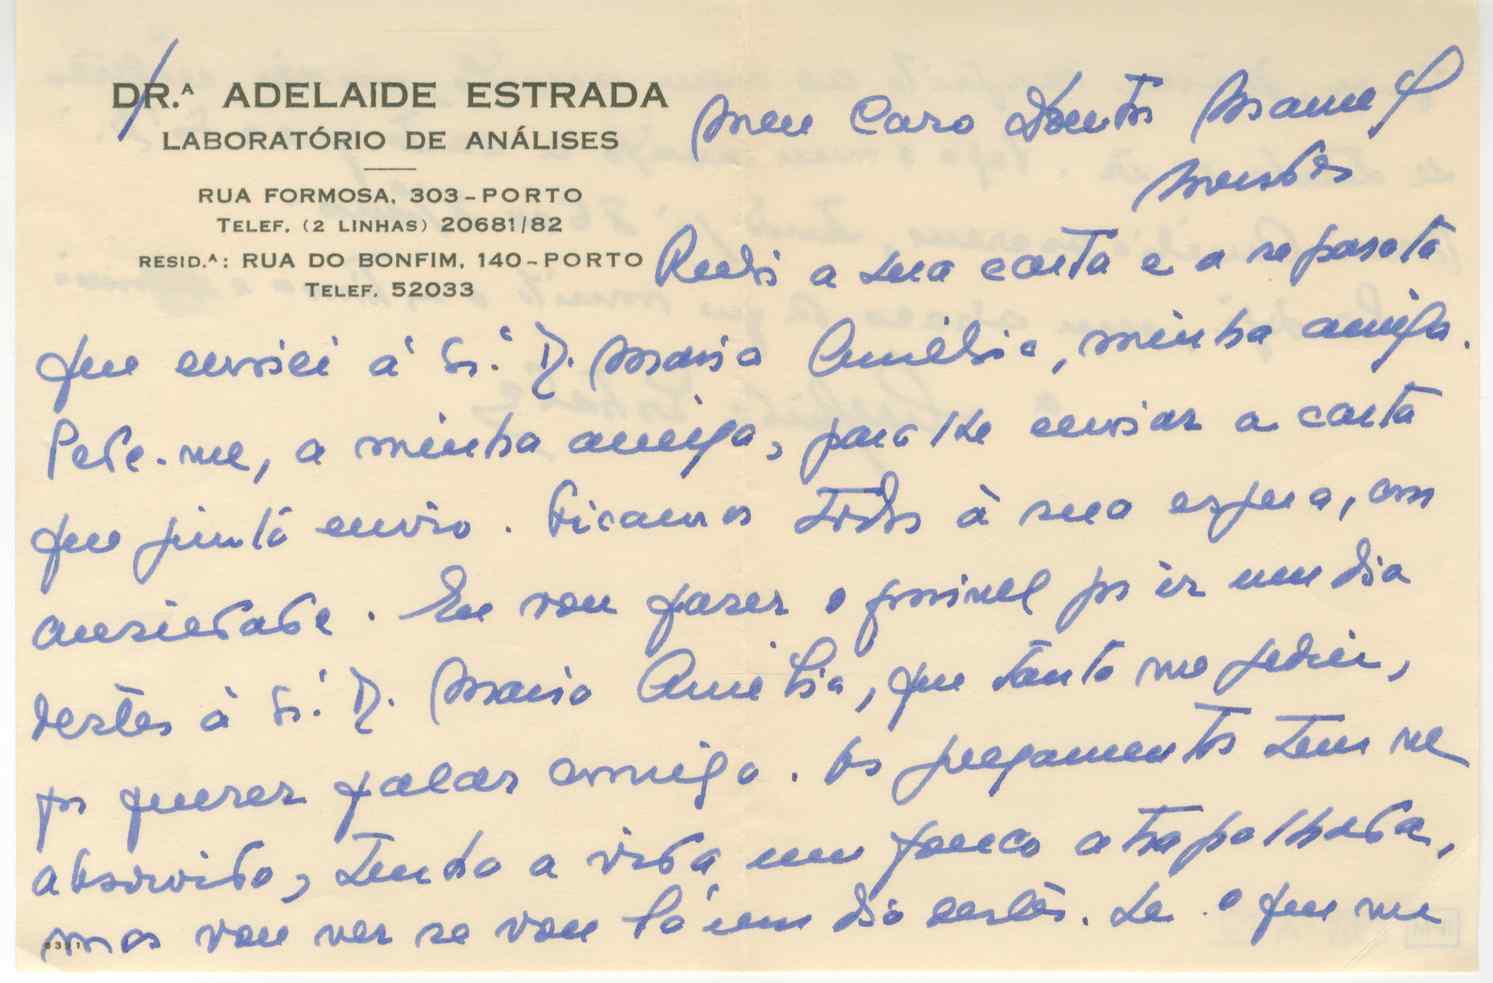 DR.ª ADELAIDE ESTRADA
LABORATÓRIO DE ANÁLISES
RUA FORMOSA, 303-PORTO
TELEF. (2 LINHAS) 20681/82
RESID.ª: RUA DO BONFIM, 140-PORTO
TELEF. 52033
Meu Caro Doutor Manuel
Mendes
Recebi a sua carta e a resposta
que enviei à Sr.ª D. Maria Amélia, minha amiga.
Pede-me, a minha amiga, para lhe enviar a carta
que junto envio. Ficamos todos à sua espera, com
ansiedade. Eu vou fazer o possivel pª ir um dia
destes à Sr.ª D. Maria Amélia, que tanto me pediu,
pª querer falar comigo. Os julgamentos tem me
absorvido, tenho a vida um pouco atrapalhada,
mas vou ver se vou lá um dia destes. Se o que me
6311